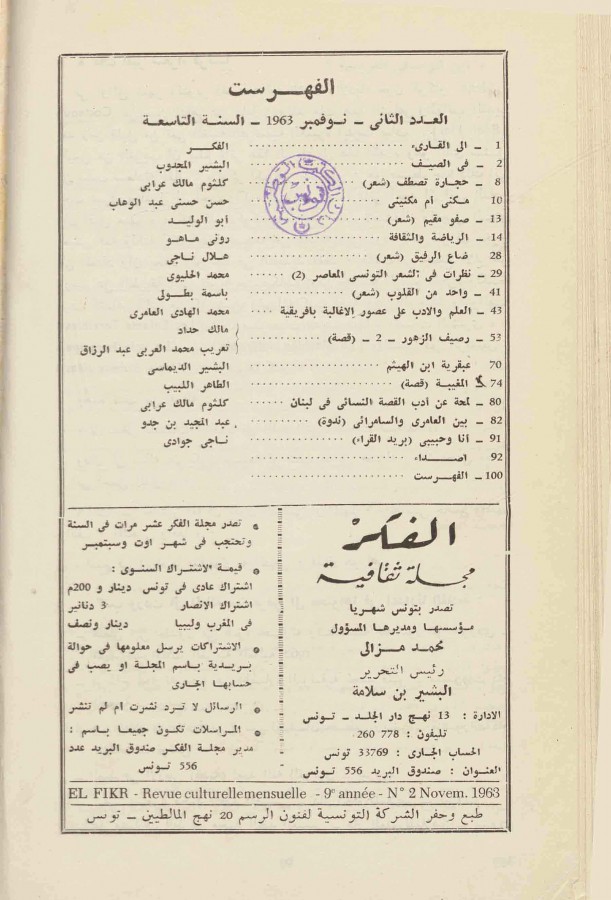 الفهرست
العدد الثانى ــ نوفمبر 1963 ــ السنة التاسعة
1 ــ الى القارىء ........ الفكر
2 ــ فى الصيف ........ البشير المجدوب
8 ــ حجارة تصطف (شعر) ........ كلثوم مالك عرابى
10 مكنى أم مكنينى ........ حسن حسنى عبد الوهاب
13 ــ صفو مقيم (شعر) ........ أبو الوليد
14 ــ الرياضة والثقافة ........ رونى ماهو
28 ضاع الرفيق (شعر) ........ هلال ناجى
29 ــ نظرات فى الشعر التونسى المعاصر (2) ...... محمد الحليوى
41 ــ واحد من القلوب (شعر) ........ باسمة بطولى
43 ــ العلم والادب على عصور الاغالبة بافريقية .... محمد الهادى العامرى
53 ــ رصيف الزهور ــ 2 ــ (قصة) ........ مالك حداد
تعريب محمد العربى عبد الرزاق
70 عبقرية ابن الهيثم ........ البشير الديماسى
74 المغيبة (قصة) ........ الطاهر اللبيب
80 ــ لمحة عن أدب القصة النسائى فى لبنان ...... كلثوم مالك عرابى
82 ــ بين العامرى والسامرائى (ندوة) ...... عبد المجيد بن جدو
91 ــ أنا وحبيبى (بريد القراء) ........ ناجى جوادى
92 اصداء ........
100 ــ الفهرست ........
الفكر
مجلة ثقافية
تصدر بتونس شهريا
مؤسسها ومديرها المسؤول
محمد مزالى
رئيس التحرير
البشير بن سلامة
الادارة : 13 نهج دار الجلد ــ تونس
تليفون : 778 260
الحساب الجارى : 33769 تونس
العنوان : صندوق البريد 556 تونس
• تصدر مجلة الفكر عشر مرات فى السنة
وتحتجب فى شهر اوت وسبتمبر
• قيمة الاشتراك السنوى :
اشتراك عادى فى تونس دينار و 200م
اشتراك الانصار 3 دنانير
فى المغرب وليبيا دينار ونصف
• الاشتراكات يرسل معلومها فى حوالة
بريدية باسم المجلة او يصب فى
حسابها الجارى
• الرسائل لا ترد نشرت ام لم تنشر
• المراسلات تكون جميعا باسم :
مدير مجلة الفكر صندوق البريد عدد
556 تونس
EL FIKR - Revue culturelle mensuelle - 9e année - N° 2 Novem. 1963
طبع وحفر الشركة التونسية لفنون الرسم 20 نهج المالطيين ــ تونس